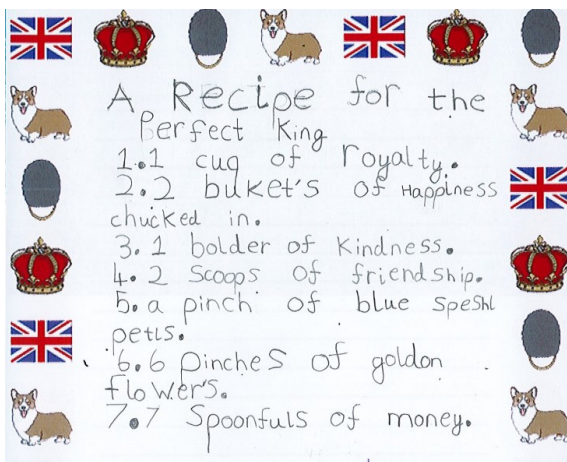 A Recipe for the
Perfect King
1.1 cug of royalty.
2.2 buket's of Happiness
chucked in.
3.1 bolder of Kindness.
4.2 Scoops of friendship.
5.a pinch of blue speshl
petls.
6.6 pinches of goldon
flower's.
7.7 Spoonfuls of money.